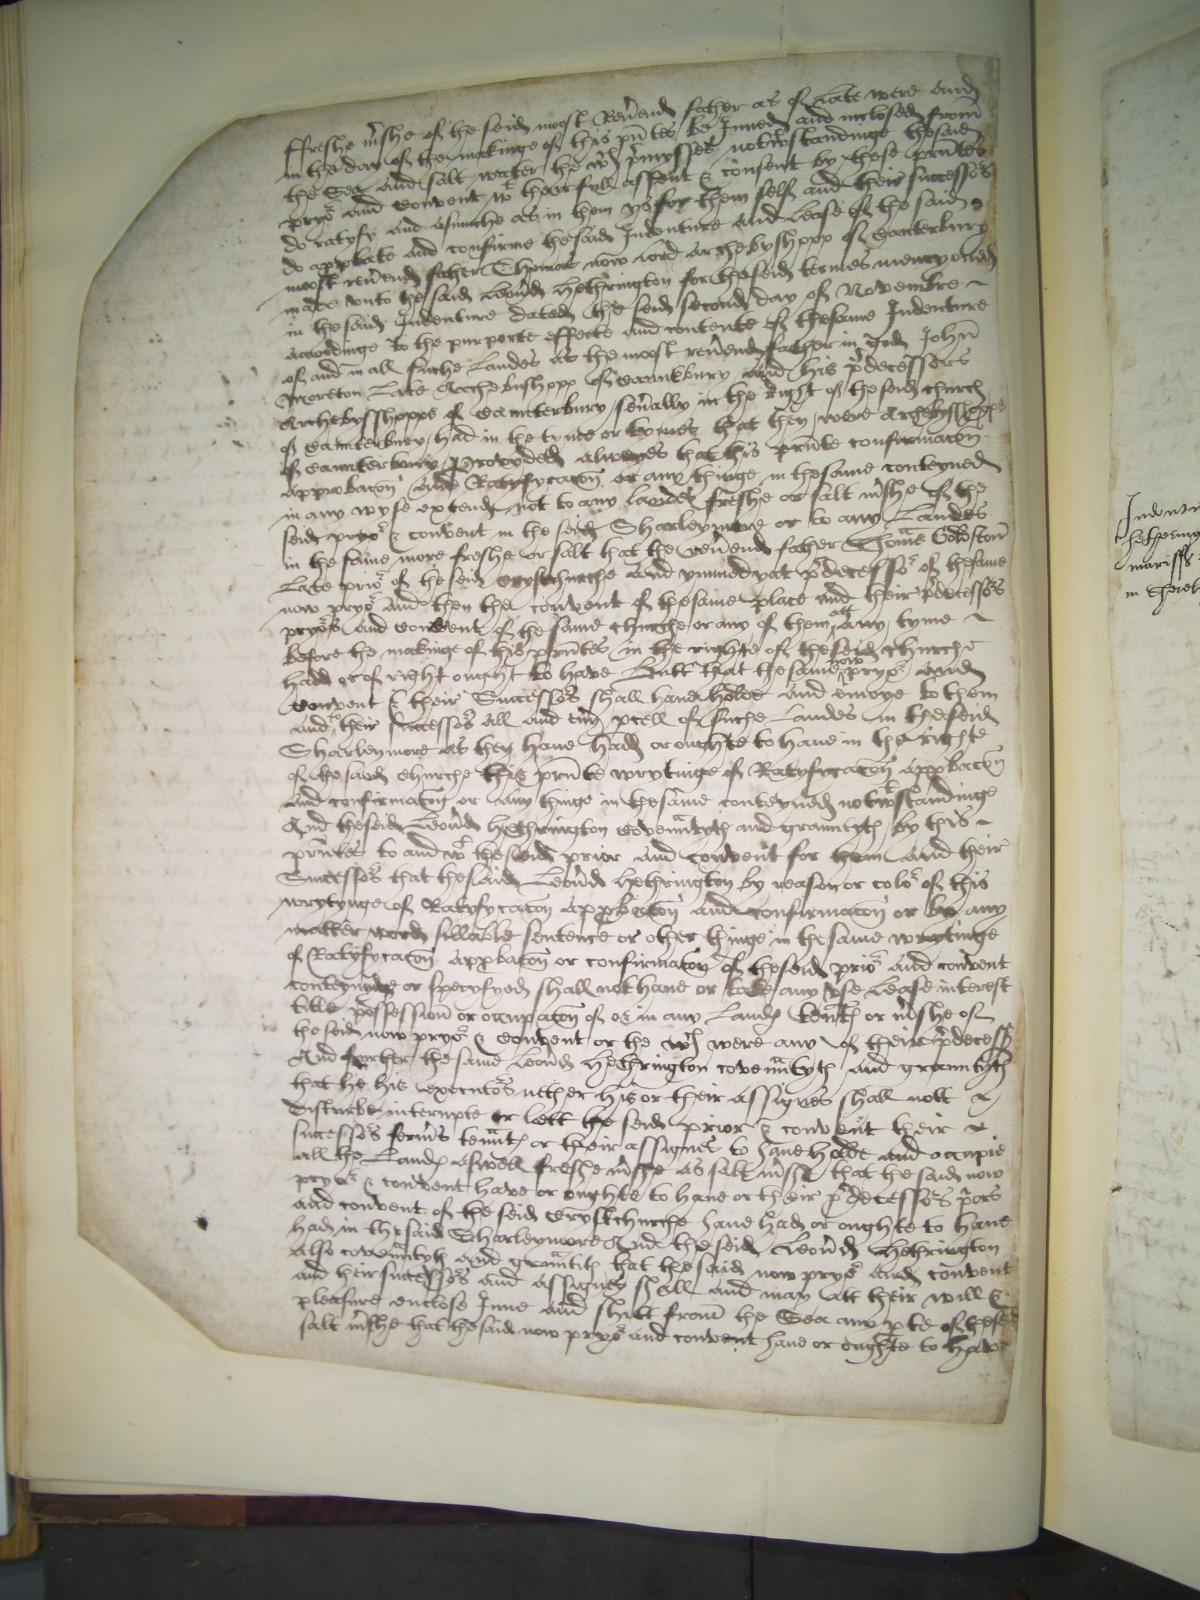 ffreshe m'she of the seid moost Rev'end father as of late were and
in the day of the makinge of this p'ntes be Inned and inclosed from
the Sea and salt water the wch p'mysses notwtstandinge thesaid
pryor and Convent wt their full assent & consent by these p'ntes
do ratyfy and asmuche as in them ys for them self and their successors
do approbate and confirme thesaid Indenture and lease of the said
moost rev'end father Thomas now lord Archebysshopp of Caunterbury
made unto the said Leon'd Hethrington for theseid termes mencyoned
in thesaid Indenture dated the seid second day of Novembre
accordinge to the purporte effecte and contente of thesame Indenture
of and in all suche Landes as the moost rev'end father in god John
Moreton late Archebusshopp of Caunterbury and his p'decessors
Archebysshopps of Caunterbury sev'ally in the right of the seid church
of Caunterbury had in the tyme or tymes that they were Archebysshopps
of Caunterbury Provyded alweyes that this p'nte confirmacon
approbacon and Ratyfycacon or any thinge in thesame conteyned
in any wyse extende not to any landes freshe or salt m'she of the
seid pryor & convent in the seid Sharleymore or to any Landes
in the same more freshe or salt that the rev'end father Thom's Goldston
late prior of the seid Crystchurche and ymmedyat p'decessor of thesame
now pryor and then the convent of thesame place and their p'decessors
pryors and convent of the same churche or any of them att any tyme
before the makinge of this p'ntes in the righte of theseid church
hadd or of right ought to have But that thesame now pryor and
convent & their Successors shall have holde and enioye to them
and to their successors all and ev'y p'cell of suche Landes in theseid
Sharleymore as they have hadd or oughte to have in the righte
of the said Churche this p'nte wrytinge of Ratyfycacon approbacon
and confirmacon or any thinge in thesame conteyned notwtstandinge
And theseid Leon'd Hethrington coven'ntyth and grauntyth by this
p'ntes to and wt the seid prior and convent for them and their
Successors that thesaid Leon'd Hethrington by reason or color of this
wrytynge of Ratyfycacon approbacon and confirmacon or by any
matter word sillable sentence or other thinge in the same wrytinge
of Ratyfycacon approbacon or confirmacon of theseid prior and convent
conteyned or specyfyed shall not have or take any use lease interest
title possession or occupacon of or in any Landes ten'ts or m'she of
the seid now pryor & Convent or the wch were any of their p'decessors
And further the same Leon'd Hethrington coven'ntyth and grauntyth
that he his executors nether his or their assignes shall nott
disturbe interrupte or lett the seid prior & convent their
successors ferm's ten'nts or their assignes to have holde and occupie
all the Landes aswell freshe m'she as salt m'she that the said now
pryor & convent have or oughte to have or their p'decessors p'ors
and convent of the seid Crystchurche have had or oughte to have
had in thesaid Sharleymore And the seid Leon'd Hethrington
also coven'ntyth and grauntith that thesaid now pryor and convent
and their successors and assignes shall and may att their will &
pleasure enclose Inne and shutt from the Sea any p'te of theseid
salt m'she that thesaid now pryor and convent have or oughte to have
Indentu